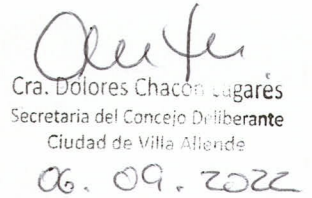 Cra. Dolores Chacon Lugarés
Secretaria del Concejo Deliberante
Ciudad de Villa Allende
06. 09. 2022